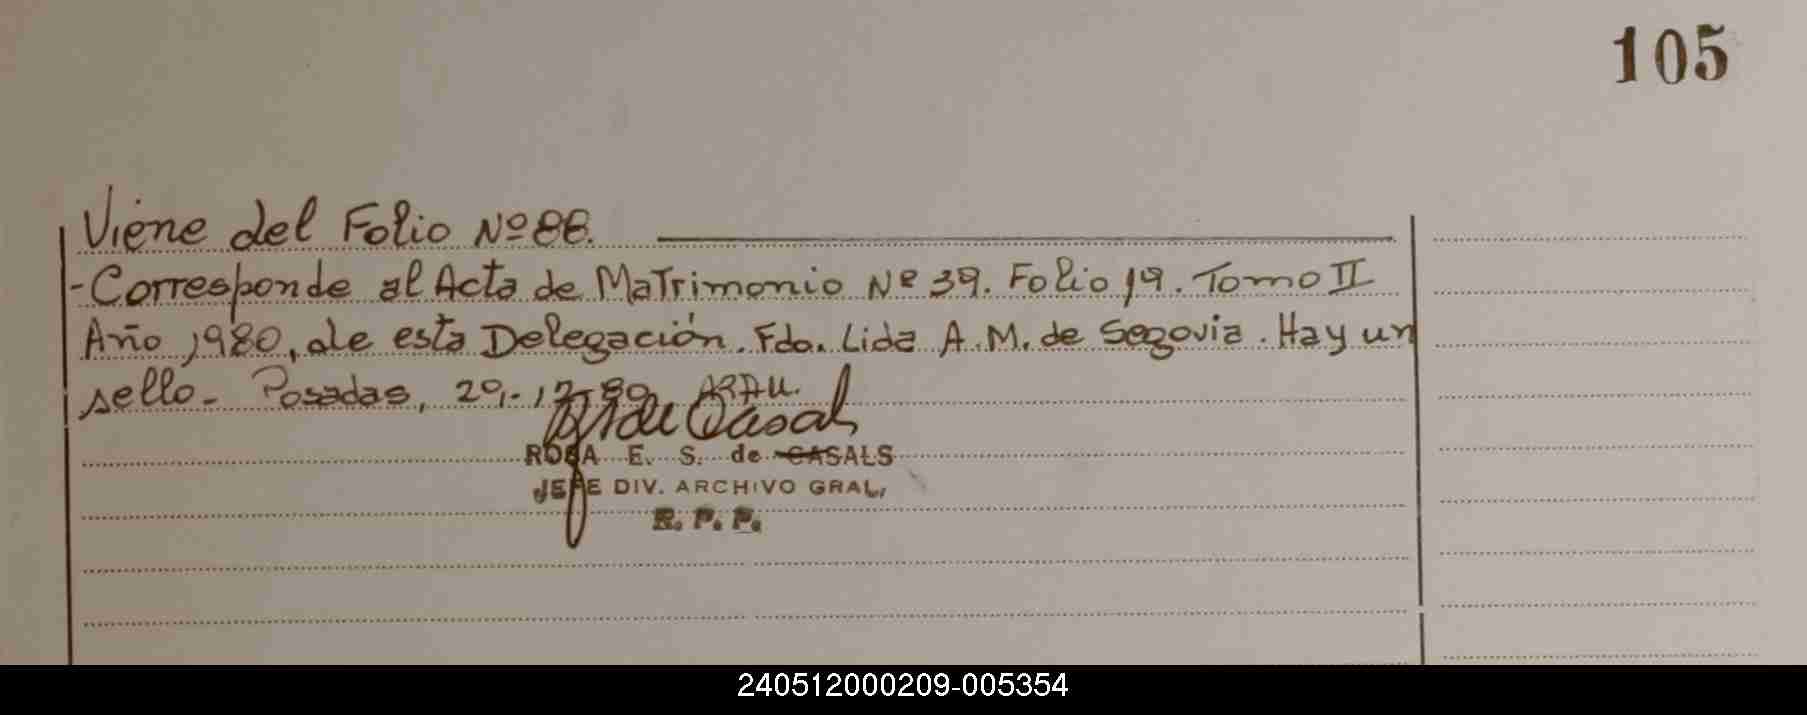 105
Viene del Folio Nº 88.
-Corresponde al Acta de Matrimonio Nº 39. Folio 19. Tomo II
Año 1980, de esta Delegación. Fdo. Lida A. M. de Segovia. Hay un
sello- Posadas, 29,-12-80
ROSA E. S. de CASALS
JEFE DIV. ARCHIVO GRAL,
R. P. P.
240512000209-005354